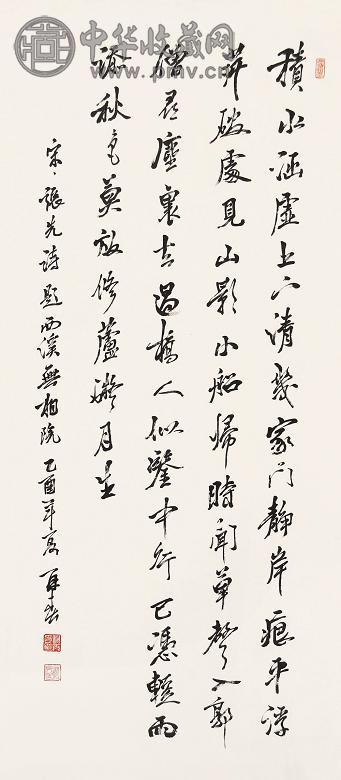 中华收藏网
www.pmv.cn
積水涵虛上下清幾家門靜岸痕平浮
萍破處見山影小船歸時聞草聲入郭
僧尋塵裏去過橋人似鑒中行已憑輕雨
添秋色莫放修蘆礙月生
宋、張先詩題西溪無相院 乙酉年夏